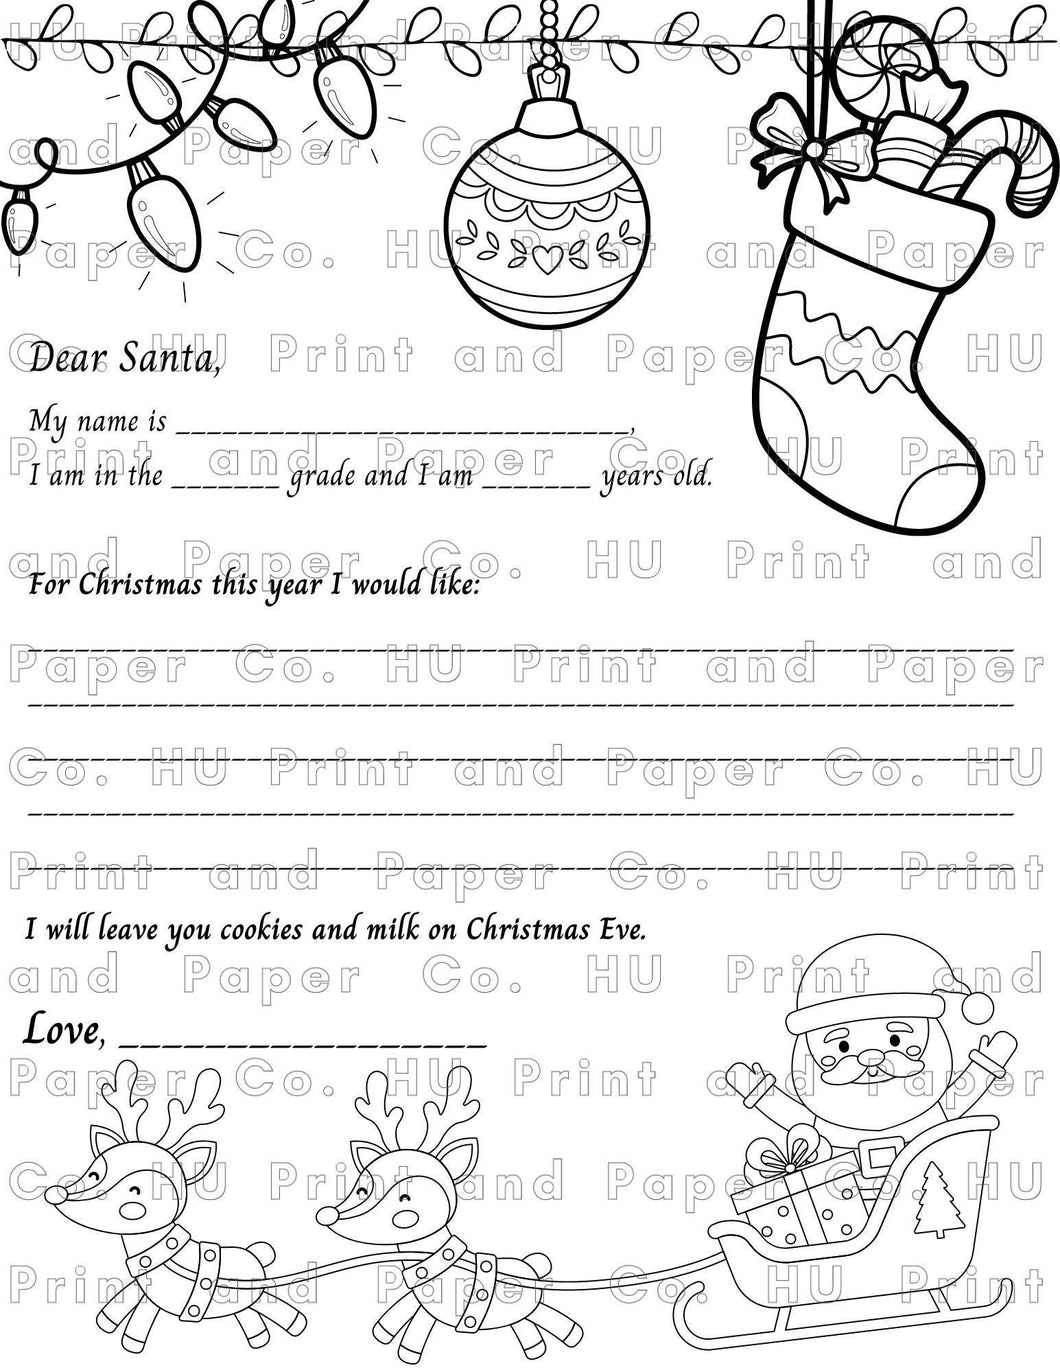 HU Print and Paper Co. HU Print
and Paper Co. HU Print and
Paper Co. HU Print and Paper
Co. HU Print and Paper Co. HU
Dear Santa,
My name is _____________________________,
Print and Paper Co. HU Print
I am in the _______ grade and I am _______ years old.
and Paper Co. HU Print and
For Christmas this year I would like:
Paper Co. HU Print and Paper
Co. HU Print and Paper Co. HU
Print and Paper Co. HU Print
I will leave you cookies and milk on Christmas Eve.
and Paper Co. HU Print and
Love, __________________
Paper Co. HU Print and Paper
Co. HU Print and Paper Co. HU
Print and Paper Co. HU Print